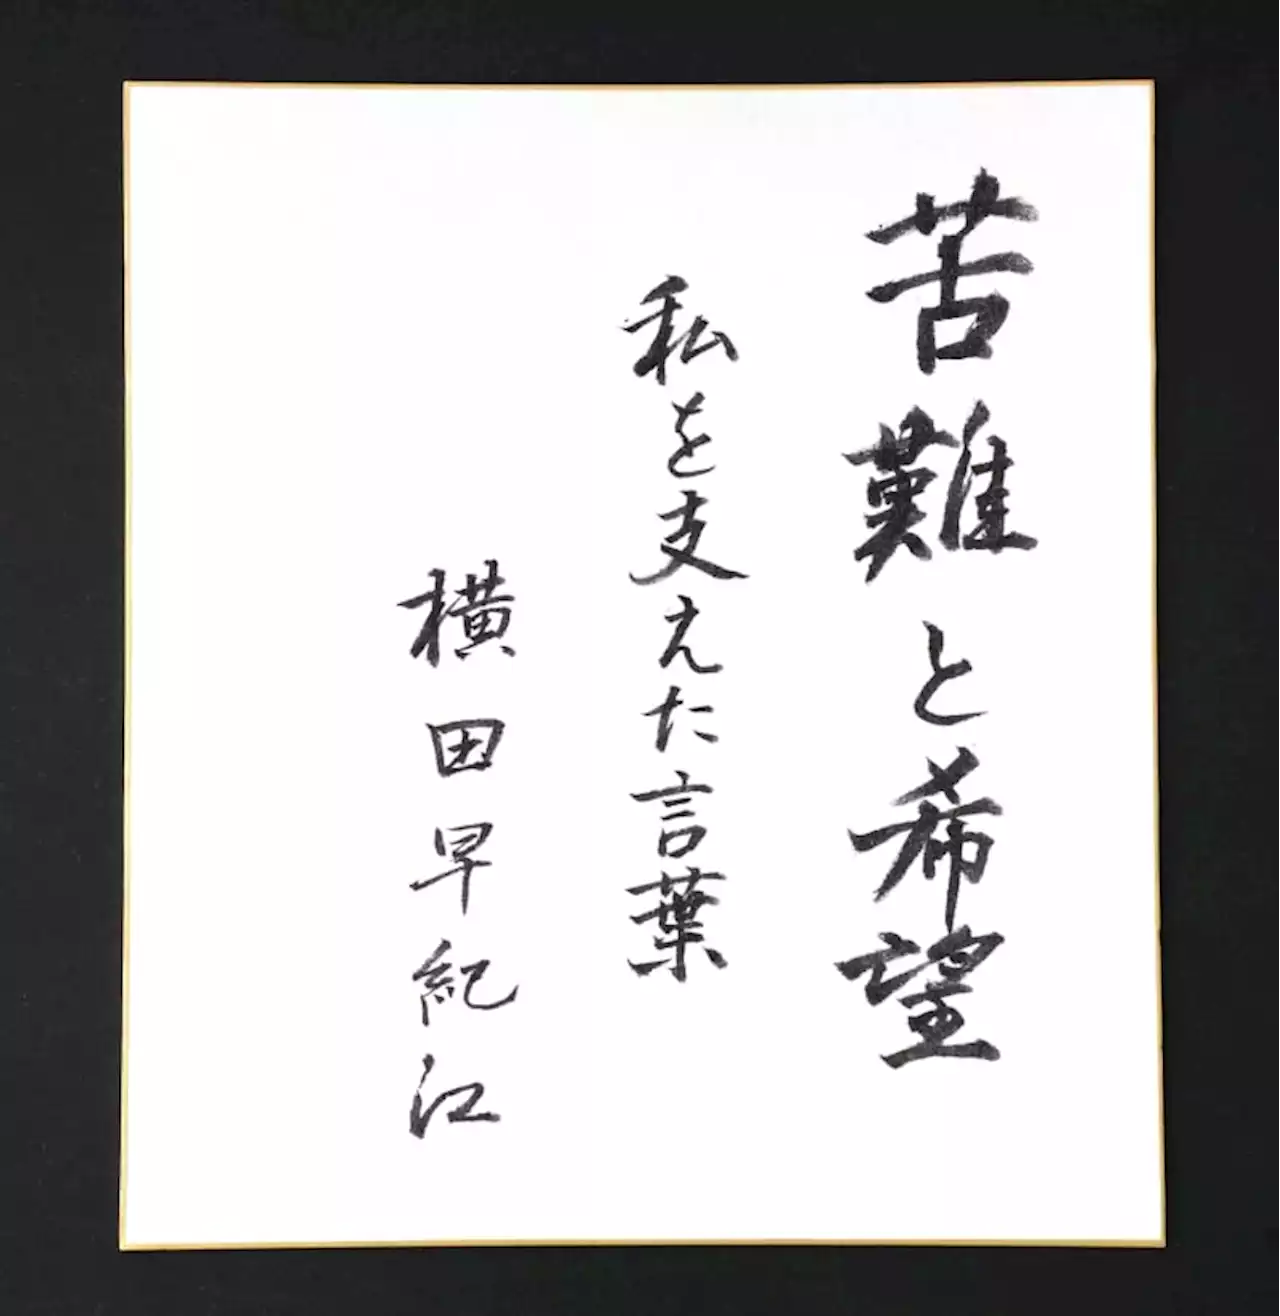 苦難と希望
私を支えた言葉
横田早紀江